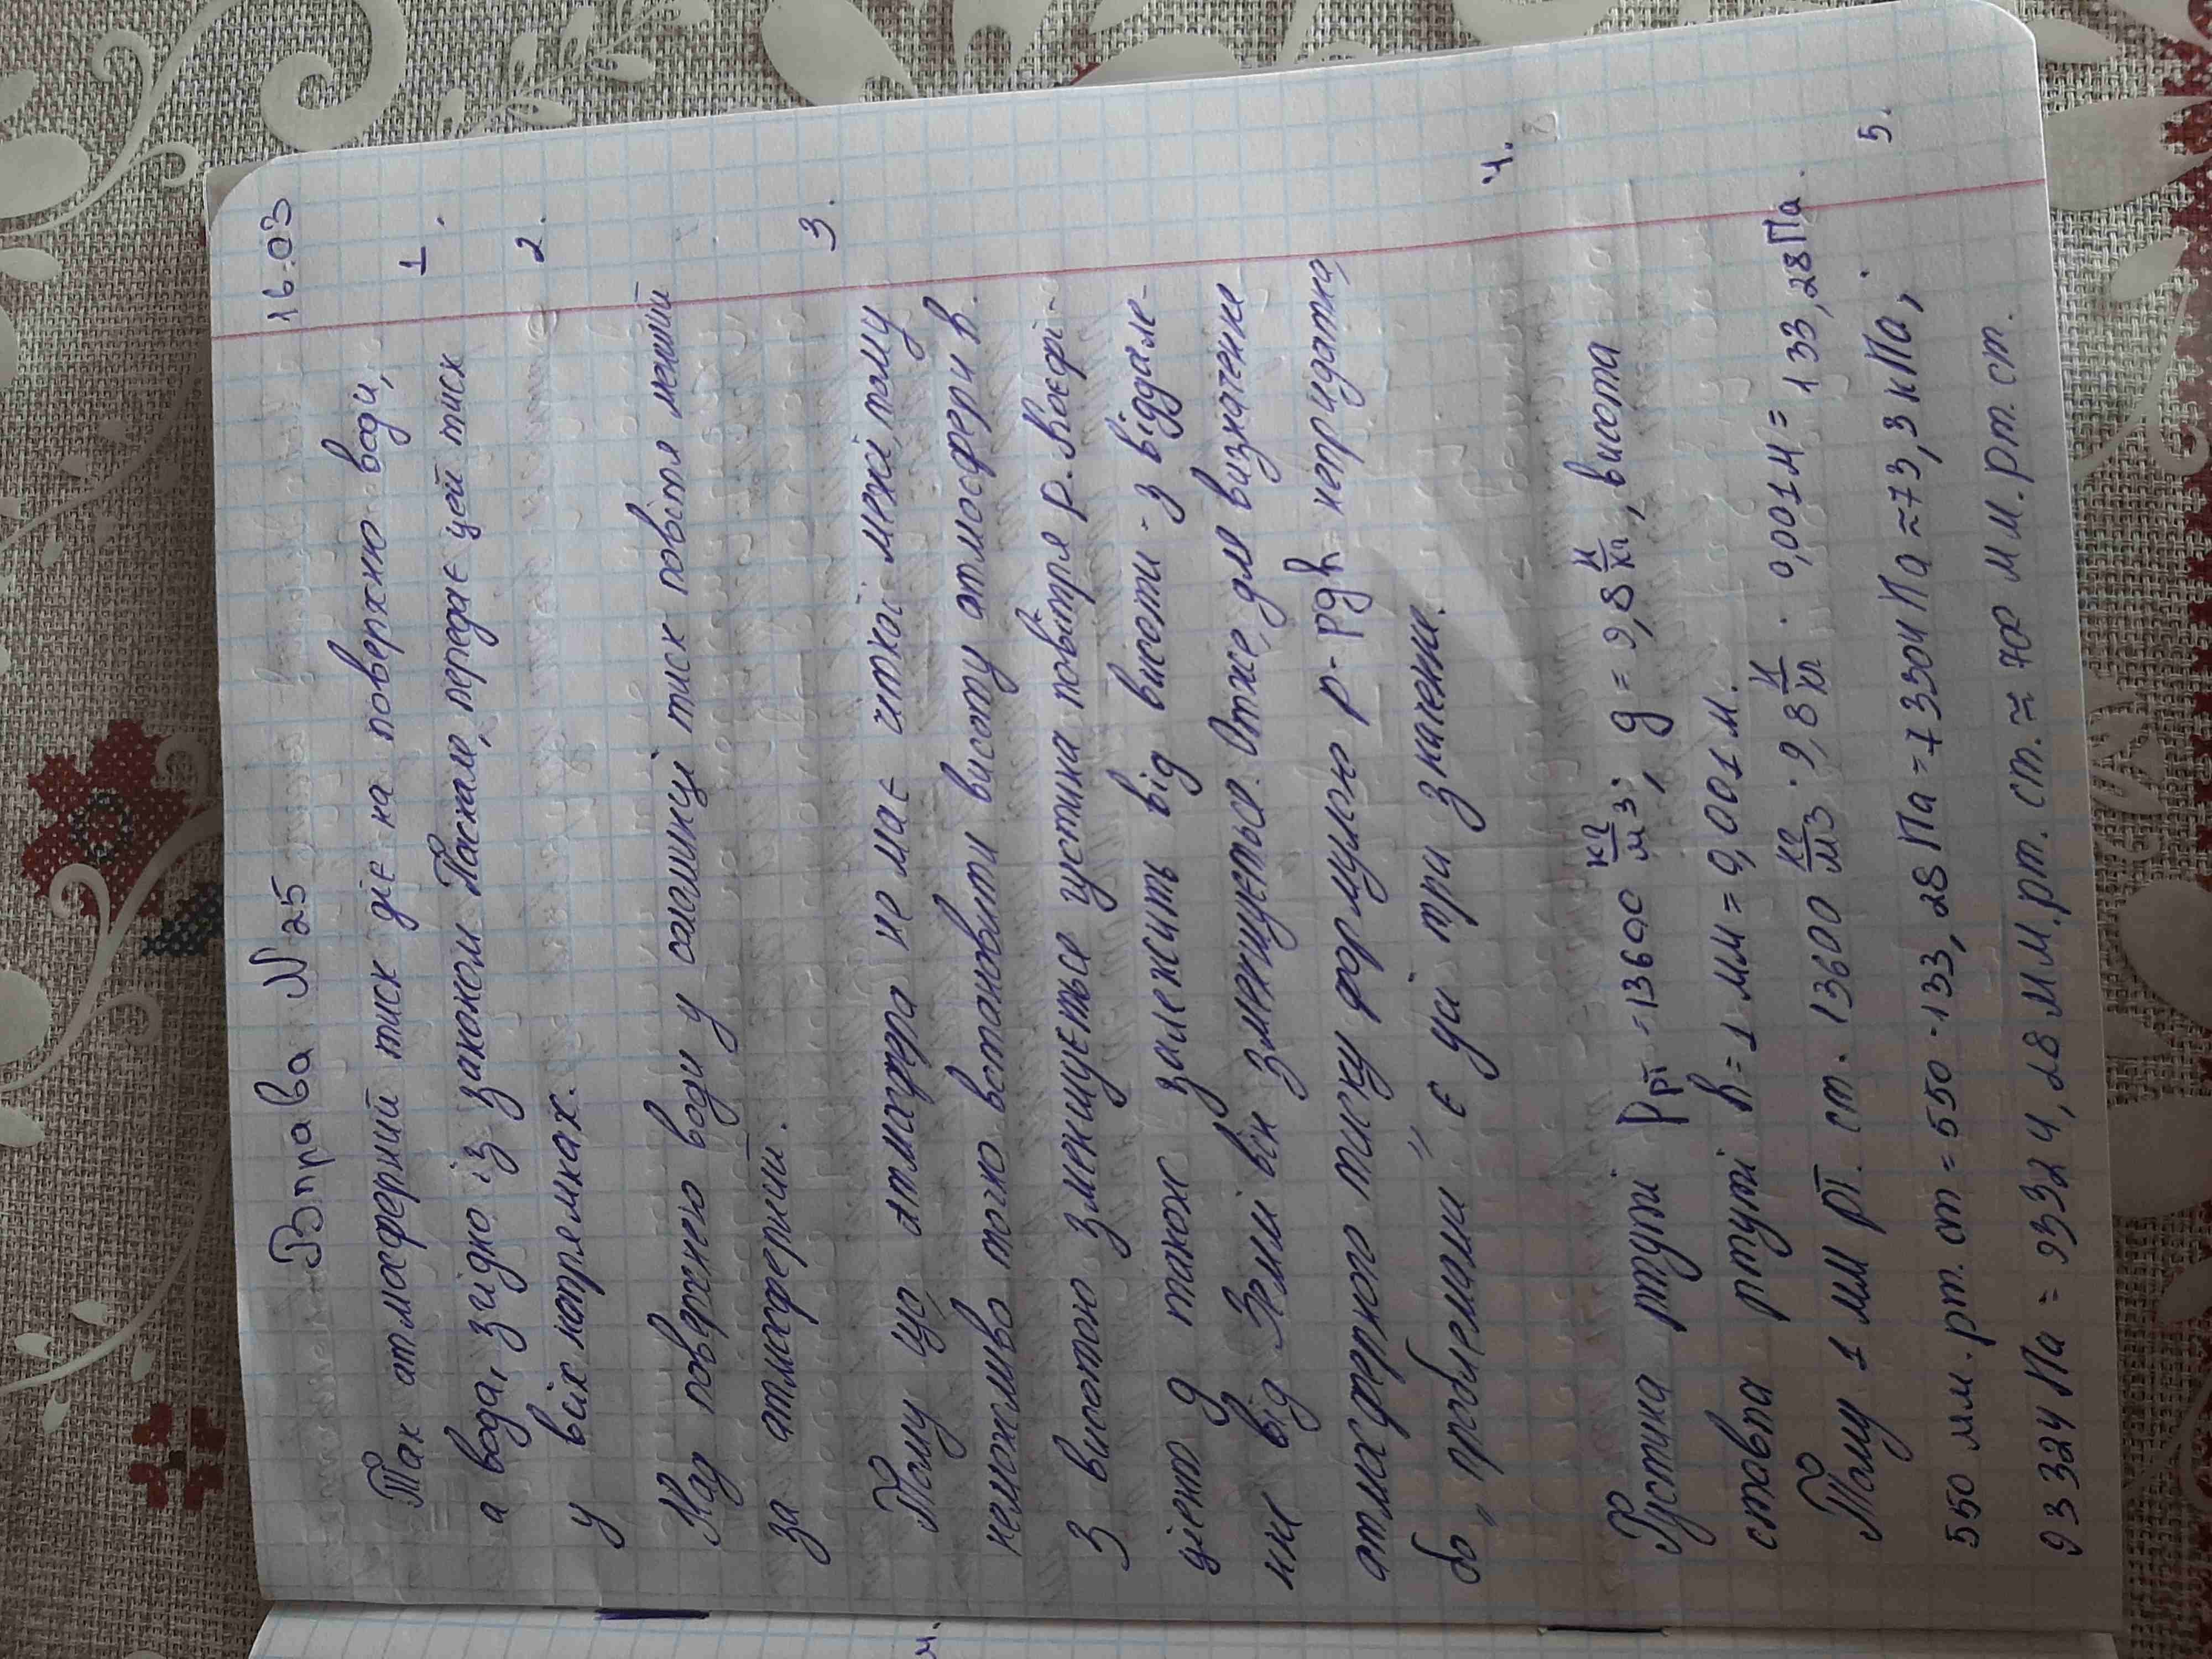 16.03
Вправа №25
1.
Так атмосферний тиск діє на поверхню води,
а вода, згідно із законом Паскаля, передає цей тиск
у всіх напрямках.
2.
Над поверхнею води у соломинці тиск повітя менший
за атмосферний.
3.
Тому що атмосфера не має чіткої межі, тому
неможливо точно встановити висоту атмосфери h.
З висотою зменшується густина повітря ρ. Коефі-
цієнт g також залежить від висоти - з віддале-
ння від Землі він зменшується. Отже, для визначення
атмосферного тиску формулою p-ρgh непридатна,
бо "проблемами" є усі три значення.
4.
Густина ртуті ρрт =13600 кг/м3; g = 9,8 н/кг, висота
ставпа ртуті h = 1 мм = 0,001 м.
Тому 1 мм рт. ст. 13600 кг/м3 · 9,8 н/кг · 0,001м = 133,28Па.
5.
550 мм. рт. ст = 550 · 133,28 Па = 73304 Па ≈ 73,3 кПа;
93324 Па = 93324,28 мм. рт. ст. ≈ 700 мм. рт. ст.
м.